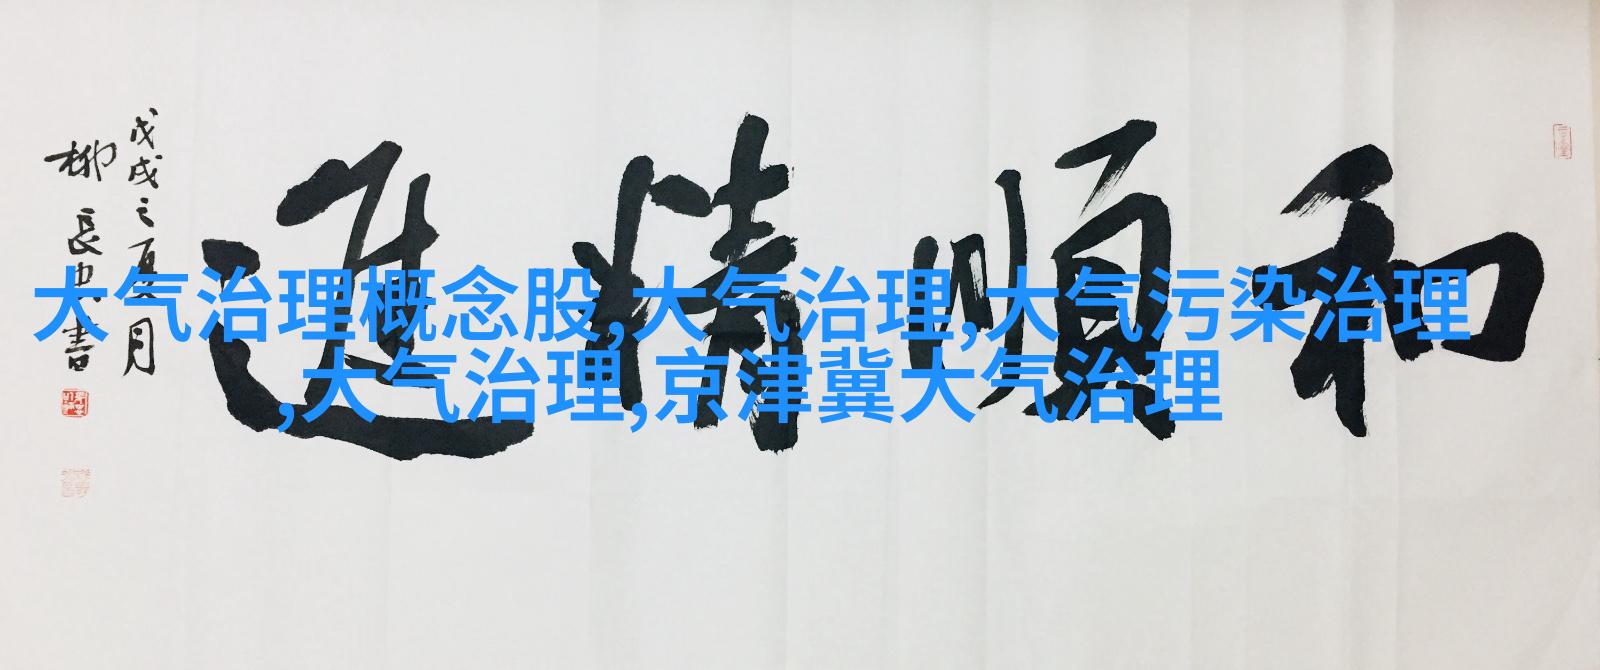 和順精進
戊戌之夏月
柳長忠書
大气治理概念股,大气治理,大气污染治理
,大气治理,京津冀大气治理